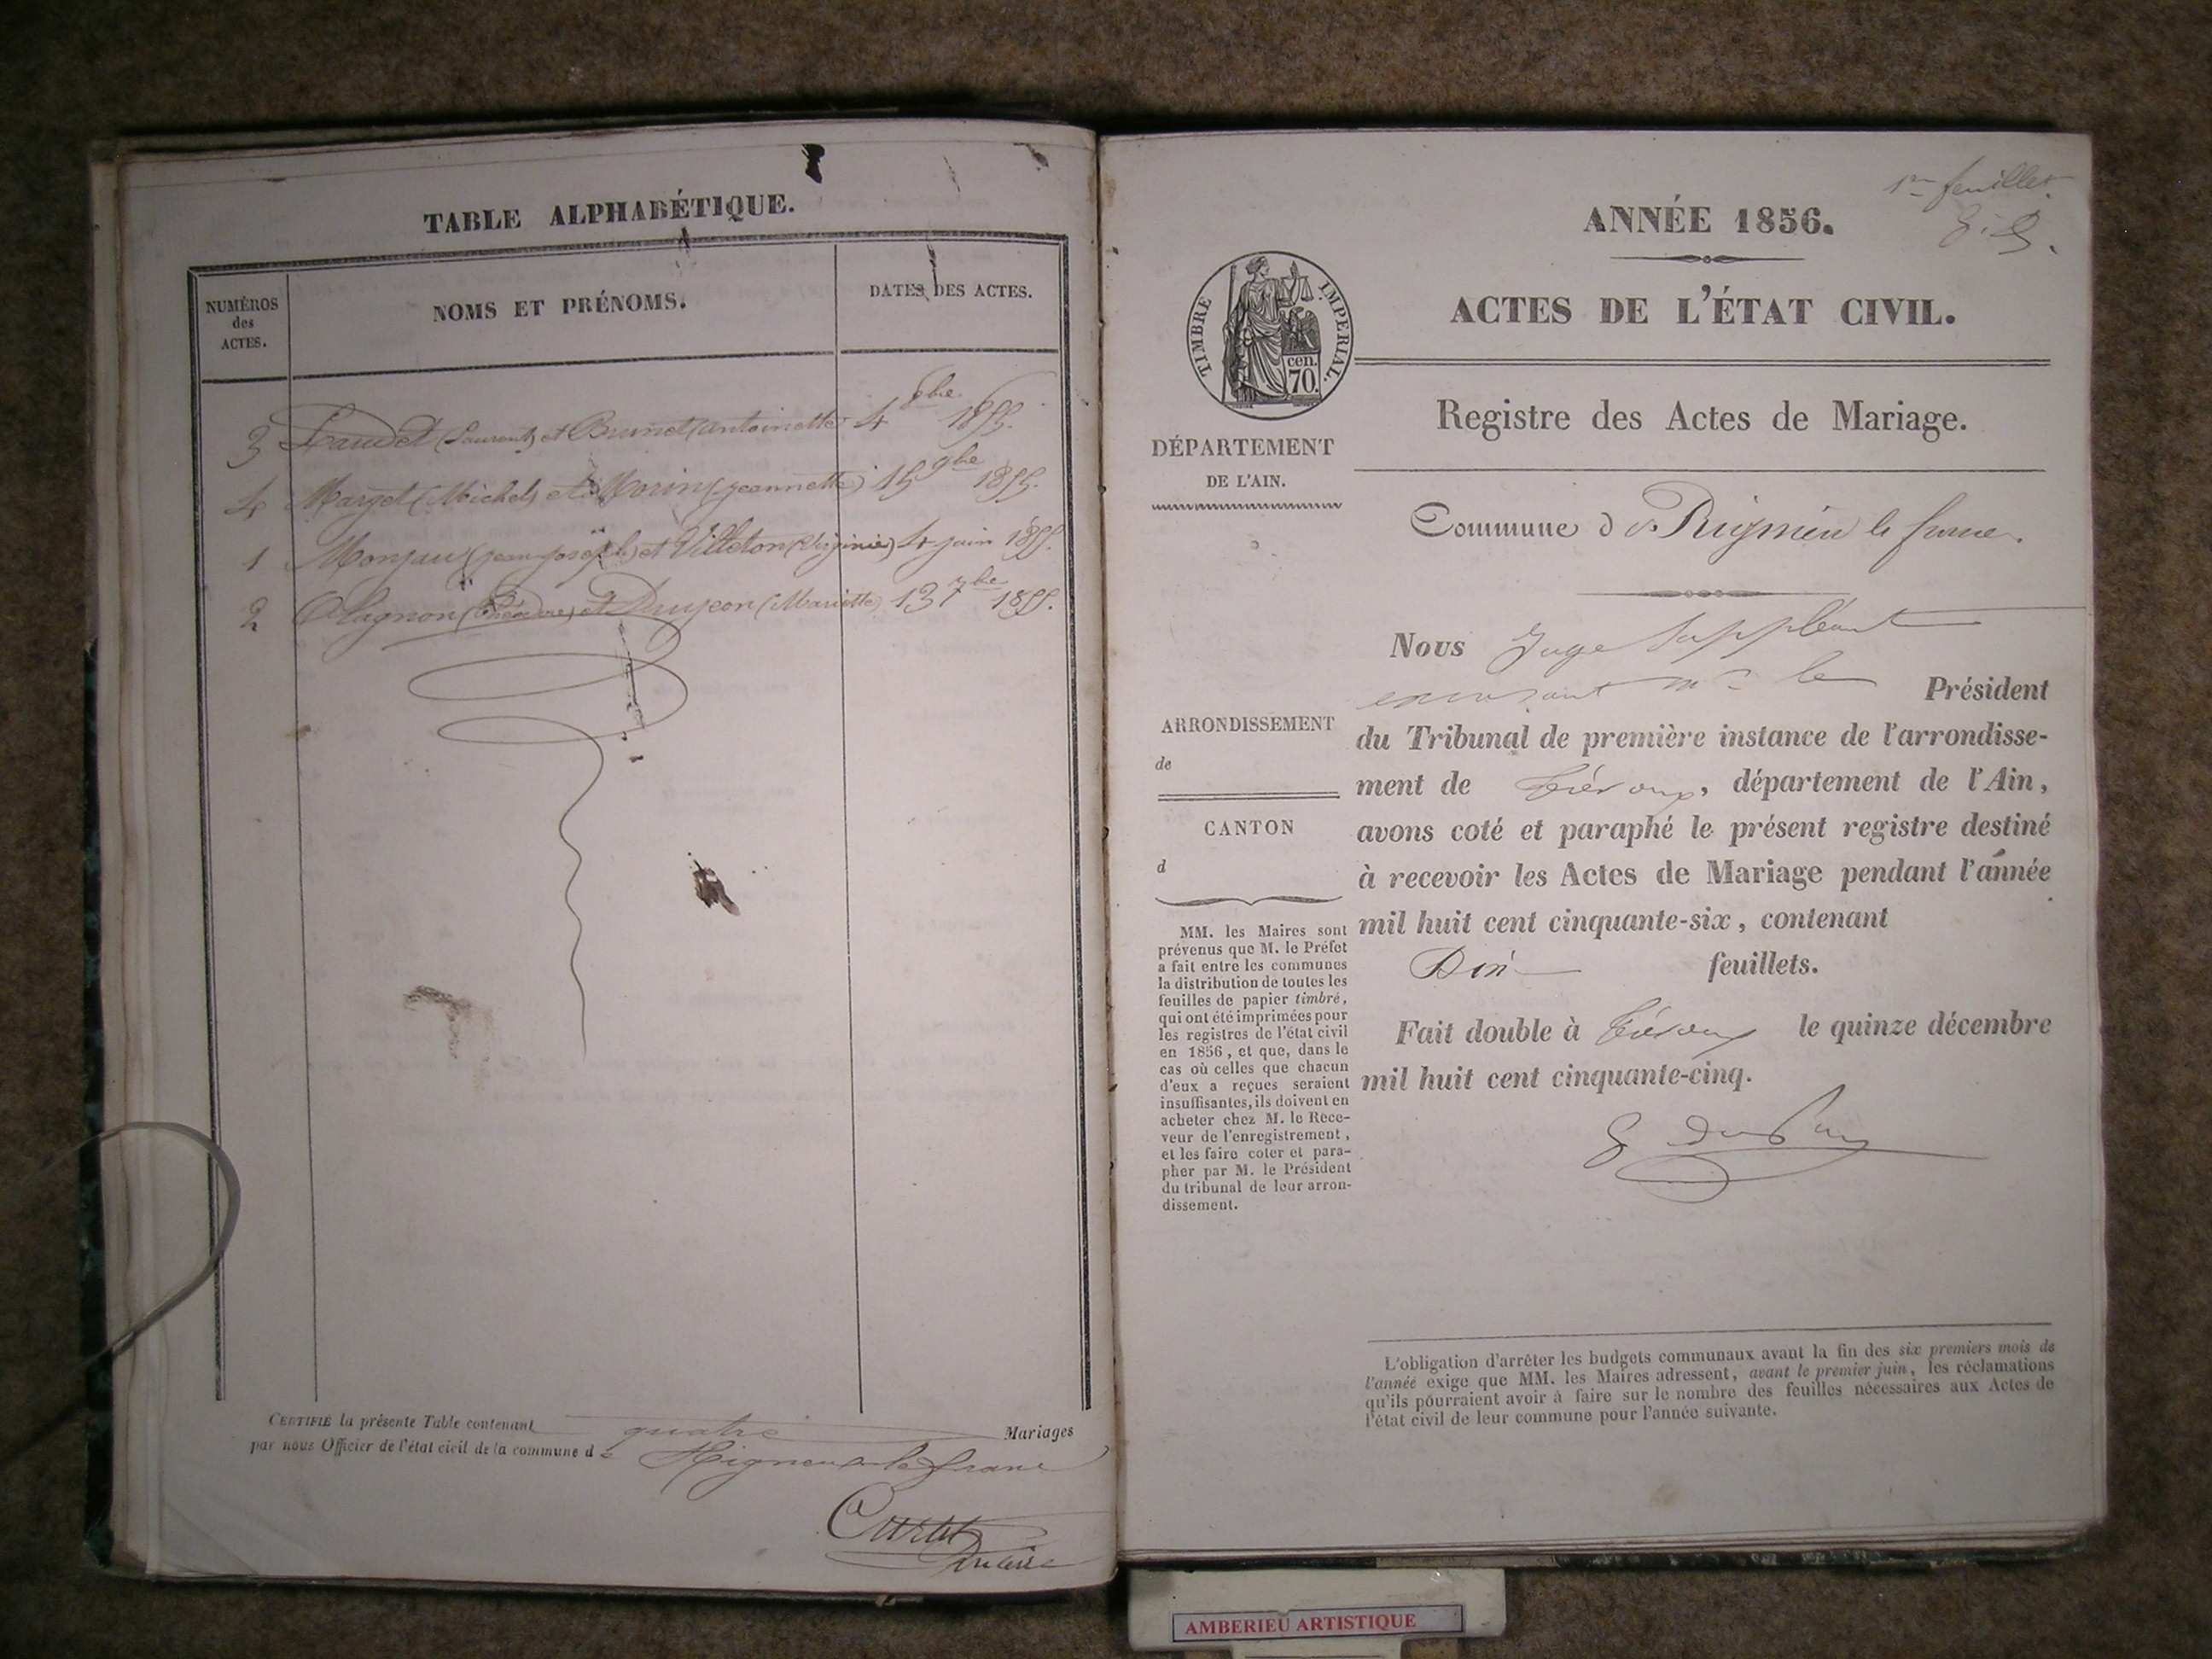 TABLE ALPHABÉTIQUE.
NUMÉROS
des
ACTES.
NOMS ET PRÉNOMS.
DATES DES ACTES.
3 (Laurent) et Brunet (antoinette) 4 8bre 1855.
4 (Michel) et Morin (jeannette) 15 9bre 1855.
1 (jean joseph) et Villeton (Virginie) 4 juin 1855.
2 Alagnon et Dujeon (Mariette) 13 7bre 1855.
CERTIFIÉ la présente Table contenant quatre Mariages
par nous Officier de l'état civil de la commune de Rigneux le franc
Maire
1er feuillet
ANNÉE 1856.
ACTES DE L'ÉTAT CIVIL.
TIMBRE IMPERIAL.
cen.
70.
Registre des Actes de Mariage.
DÉPARTEMENT
DE L'AIN.
Commune de Rignieu le franc.
Nous Juge Suppléant
Mr le Président
ARRONDISSEMENT
de
CANTON
d
du Tribunal de première instance de l'arrondisse-
ment de Trévoux, département de l'Ain,
avons coté et paraphé le présent registre destiné
à recevoir les Actes de Mariage pendant l'année
mil huit cent cinquante-six, contenant
feuillets.
Fait double à Trévoux le quinze décembre
mil huit cent cinquante-cinq.
MM. les Maires sont
prévenus que M. le Préfet
a fait entre les communes
la distribution de toutes les
feuilles de papier timbré,
qui ont été imprimées pour
les registres de l'état civil
en 1856, et que, dans le
cas où celles que chacun
d'eux a reçues seraient
insuffisantes, ils doivent en
acheter chez M. le Rece-
veur de l'enregistrement,
et les faire coter et para-
pher par M. le Président
du tribunal de leur arron-
dissement.
L'obligation d'arrêter les budgets communaux avant la fin des six premiers mois de
l'année exige que MM. les Maires adressent, avant le premier juin, les réclamations
qu'ils pourraient avoir à faire sur le nombre des feuilles nécessaires aux Actes de
l'état civil de leur commune pour l'année suivante.
AMBERIEU ARTISTIQUE